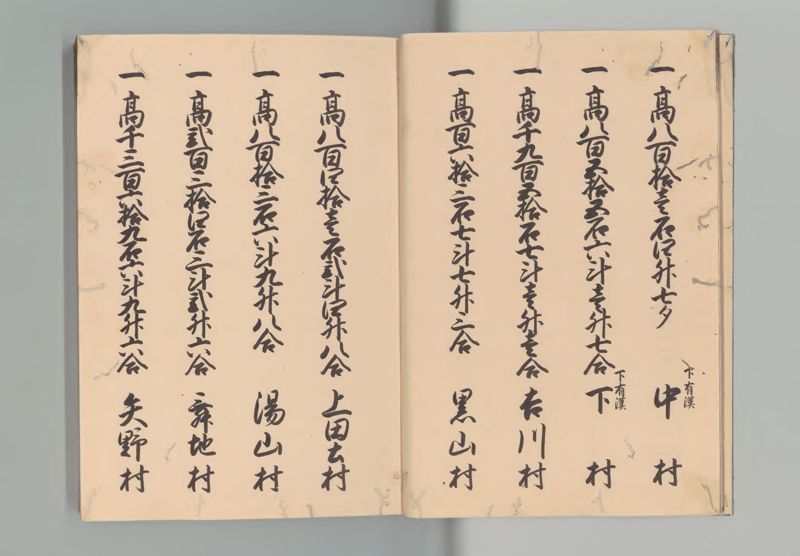 一高八百拾壱石四升七夕 下有漢 中村
一高八百五拾五石六斗壱升七合 下有漢 下村
一高千九百五拾石七斗壱升壱合 吉川村
一高百六拾三石七斗七升三合 黒山村
一高八百四拾壱石弐斗四升八合 上田土村
一高八百拾三石六斗九升八合 湯山村
一高弐百三拾四石三斗弐升六合 舞地村
一高千三百六拾九石六斗九升六合 矢野村